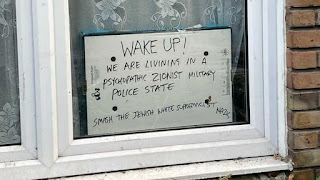 WAKE UP!
WE ARE LIVINING IN A
PSYCHOPATHIC ZIONIST MILITARY
POLICE STATE
SMASH THE JEWISH WHITE SUPREMACIST